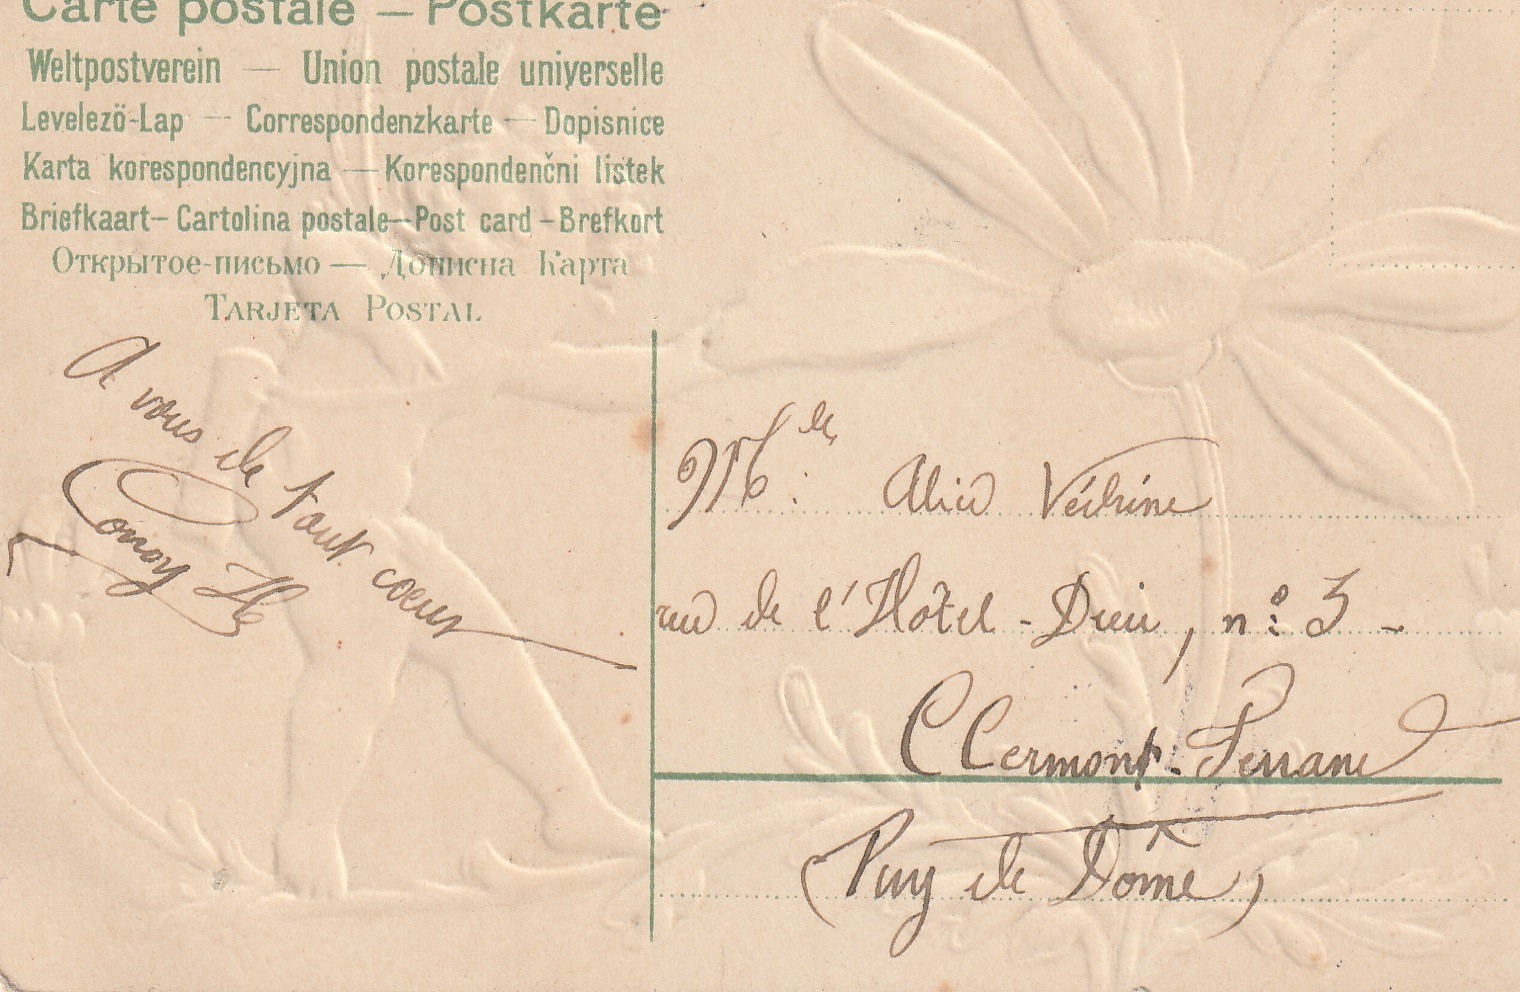 Carte postale — Postkarte
Weltpostverein — Union postale universelle
Levelező-Lap — Correspondenzkarte — Dopisnice
Karta korespondencyjna — Korespondenčni listek
Briefkaart – Cartolina postale – Post card – Brefkort
Открытое-письмо — Дописна Карта
Tarjeta Postal
A vous de tout coeur
Mlle: Alice Védrine
rue de l'Hôtel-Dieu, n° 3 -
Clermont-Ferrand
(Puy de Dôme)